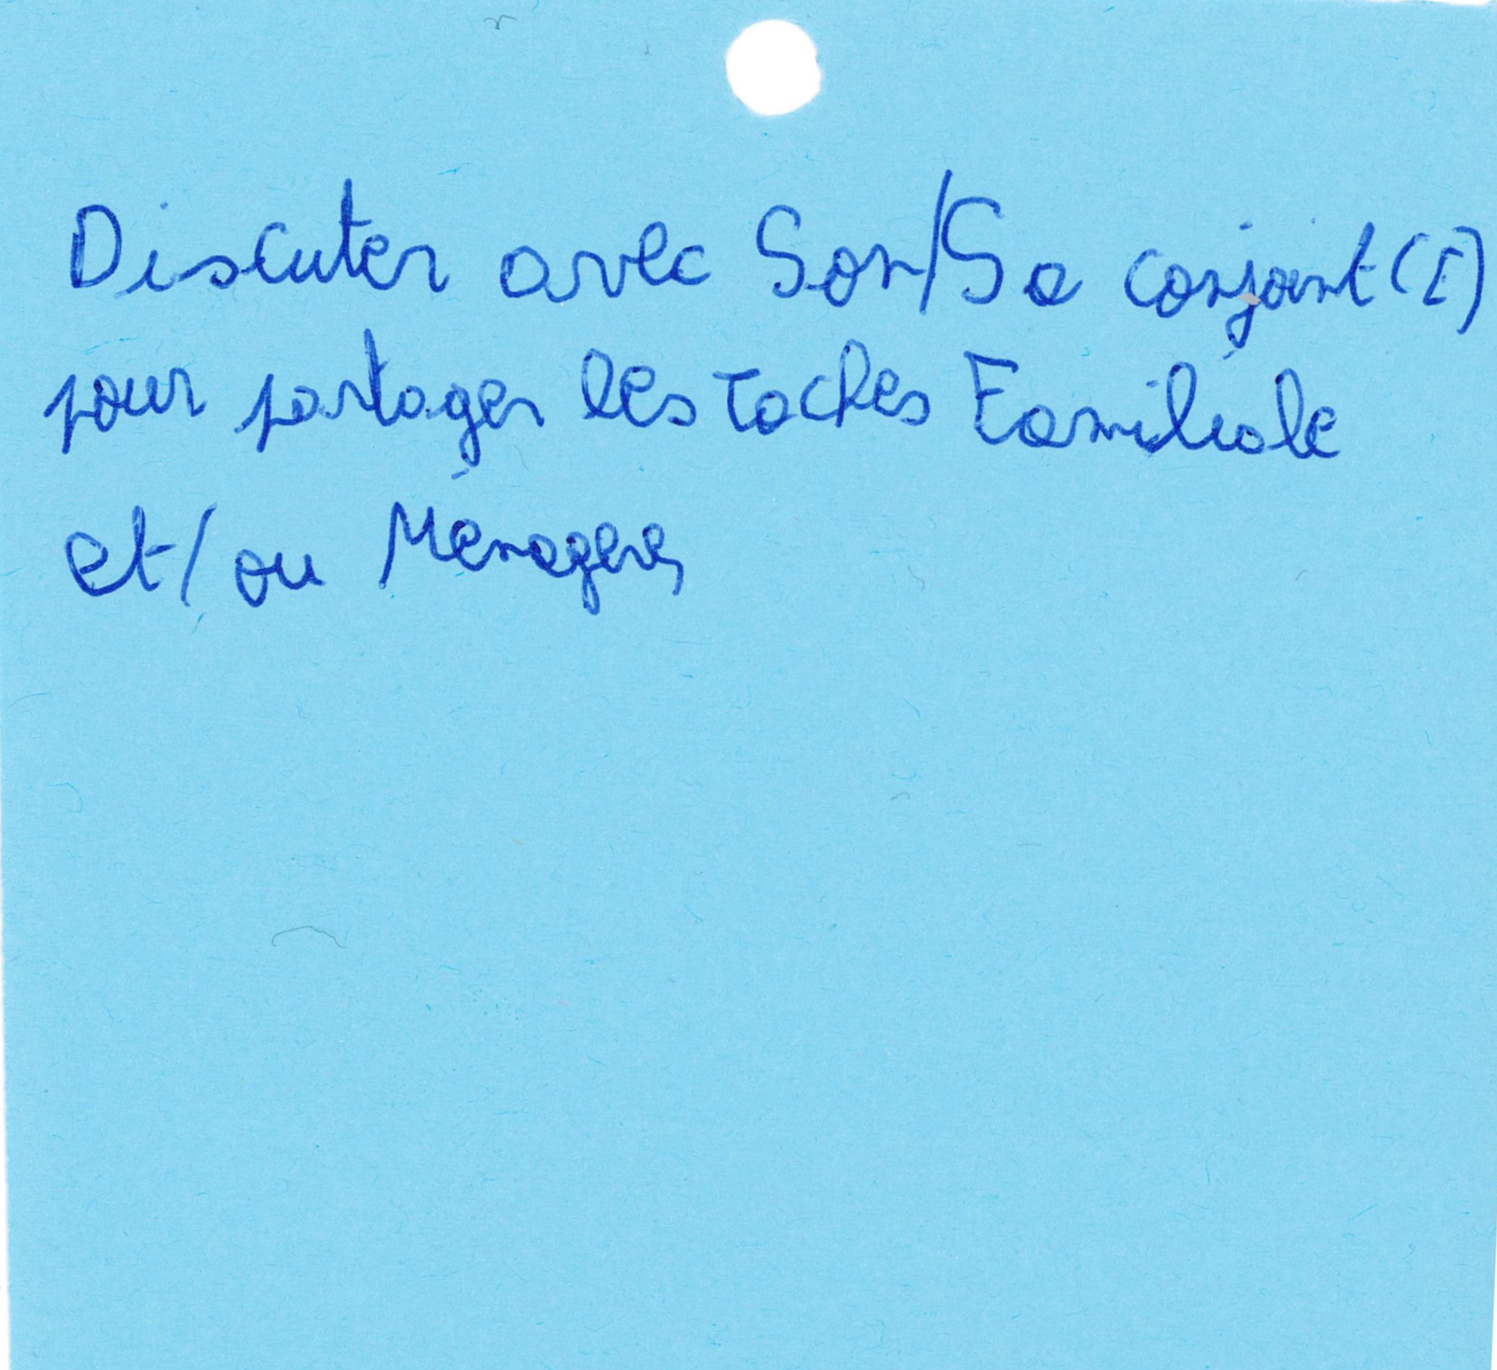 Discuter avec Son/Sa conjoint(E)
pour partager les Taches Familiale
et/ou Ménageres